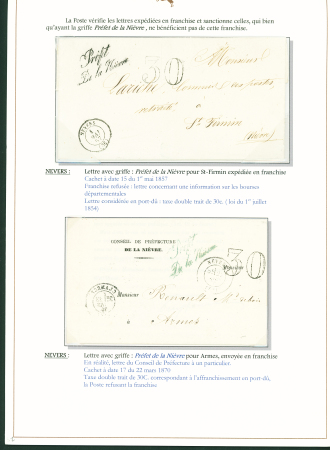 La Poste vérifie les lettres expédiées en franchise et sanctionne celles, qui bien
qu'ayant la griffe Préfet de la Nièvre, ne bénéficient pas de cette franchise.
Préfet
De la Nièvre
30
Monsieur
St Firmin
NEVERS : Lettre avec griffe : Préfet de la Nièvre pour St-Firmin expédiée en franchise
Cachet à date 15 du 1er mai 1857
Franchise refusée : lettre concernant une information sur les bourses
départementales
Lettre considérée en port-dû : taxe double trait de 30c. ( loi du 1er juillet
1854)
CONSEIL DE PRÉFECTURE
DE LA NIÈVRE.
De la Nièvre
30
Monsieur
Monsieur
à Armes
NEVERS : Lettre avec griffe : Préfet de la Nièvre pour Armes, envoyée en franchise
En réalité, lettre du Conseil de Préfecture à un particulier.
Cachet à date 17 du 22 mars 1870
Taxe double trait de 30C. correspondant à l'affranchissement en port-dû,
la Poste refusant la franchise